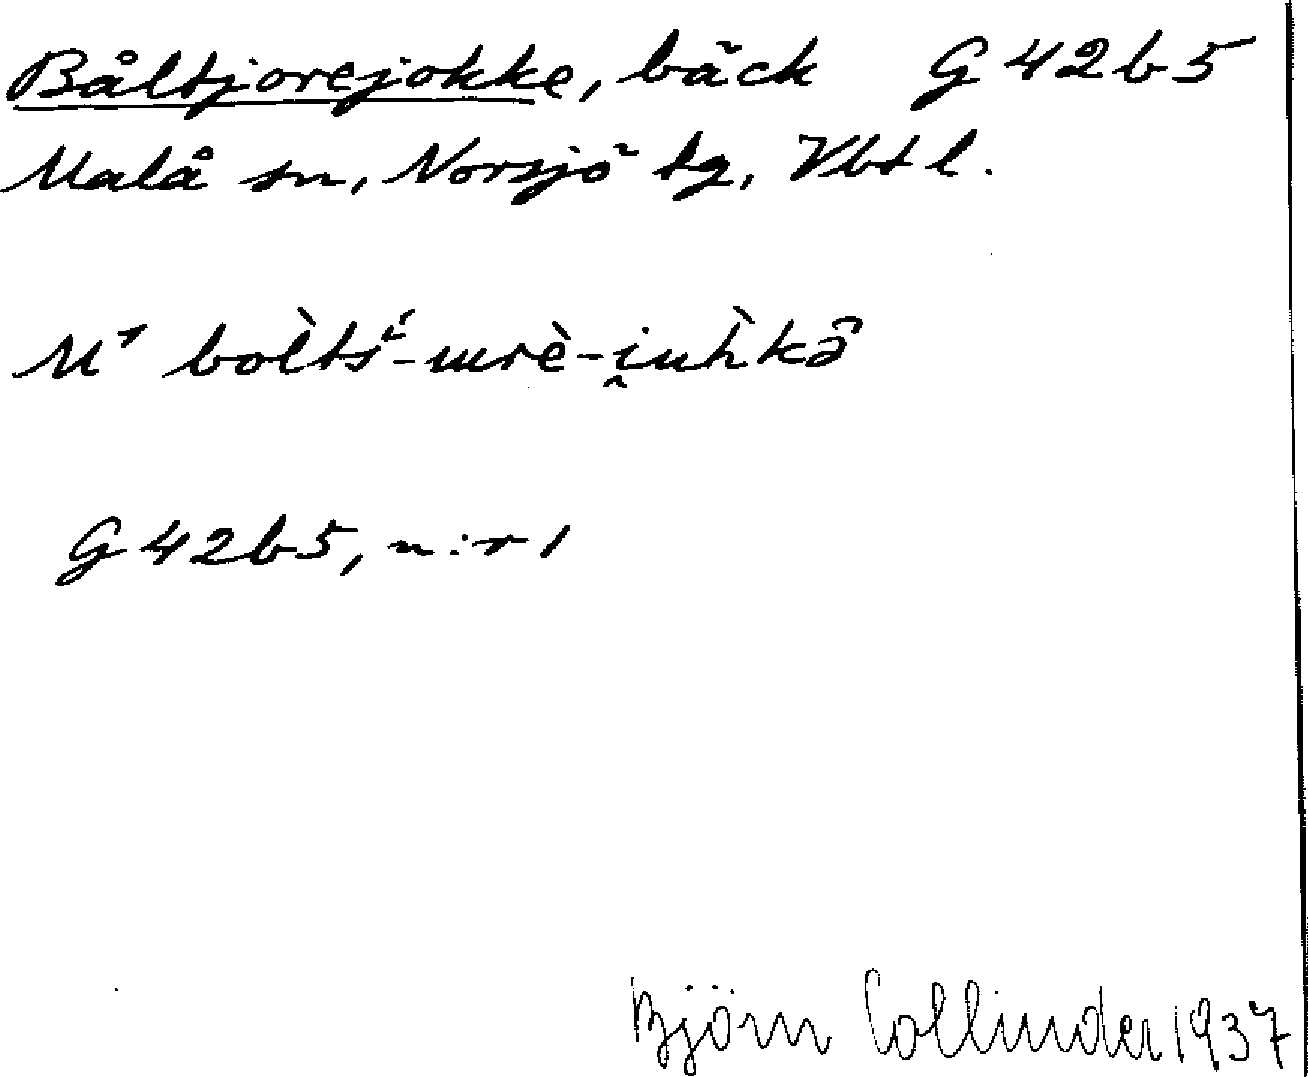 Båltjorejokke, bäck G 42 b 5
Malå sn, Norsjö tg, Vbtl.
M¹ bol̀tś-ɯrè-i̯uh̀kâ
G 42 b 5, n:r 1
Björn Collinder 1937